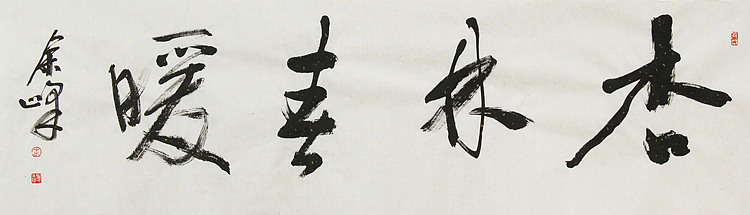 杏林春暖
余峰